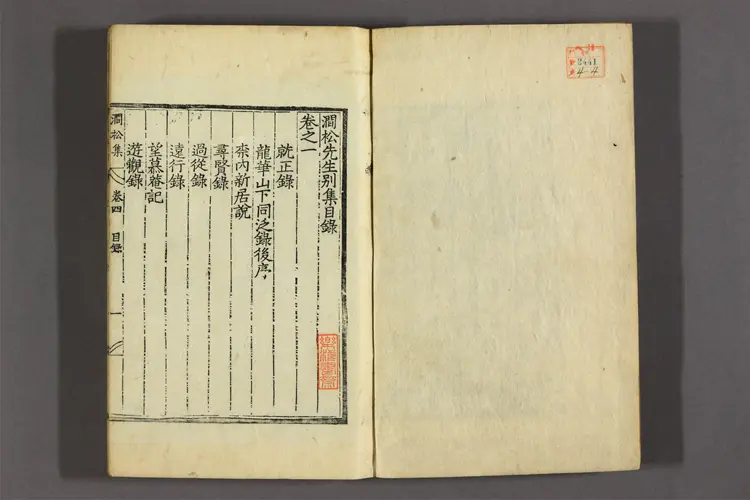 澗松先生別集目錄
卷之一
就正錄
龍華山下同泛錄後序
柰內新居說
尋賢錄
過從錄
遠行錄
望慕菴記
遊觀錄
澗松集 卷四 目錄 一
2441
4-4